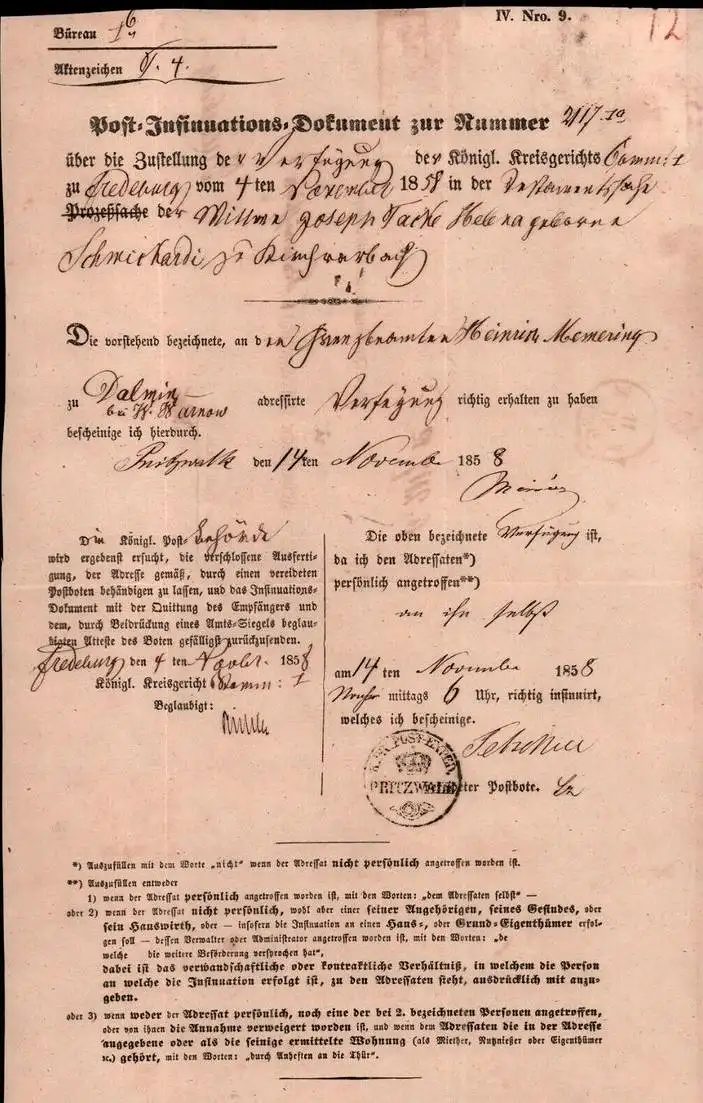 IV. Nro. 9.
12
Büreau I
Aktenzeichen T. 4.
Post-Insinuations-Dokument zur Nummer
über die Zustellung der Verfügung des Königl. Kreisgerichts Comm: I
zu Fredeburg vom 4 ten November 1858 in der Testamentssache
Prozeßsache der Wittwe Joseph Tacke Helena geborne
zu
Die vorstehend bezeichnete, an den Grenzbeamten Heinrich Memering
zu Dalmin
bei K. Warnow
adressirte Verfügung richtig erhalten zu haben
bescheinige ich hierdurch.
Pritzwalk den 14 ten November 1858
Die Königl. Post-Behörde
wird ergebenst ersucht, die verschlossene Ausferti-
gung, der Adresse gemäß, durch einen vereideten
Postboten behändigen zu lassen, und das Insinuations-
Dokument mit der Quittung des Empfängers und
dem, durch Beidrückung eines Amts-Siegels beglau-
bigten Atteste des Boten gefälligst zurückzusenden.
Fredeburg den 4 ten Novbr. 1858
Königl. Kreisgericht Comm: I
Beglaubigt:
Die oben bezeichnete Verfügung ist,
da ich den Adressaten*)
persönlich angetroffen**)
an ihn selbst
am 14 ten November 1858
Nach mittags 6 Uhr, richtig insinuirt,
welches ich bescheinige.
K. PR. POST-EXPED.
PRITZWALK
Postbote.
*) Auszufüllen mit dem Worte „nicht" wenn der Adressat nicht persönlich angetroffen worden ist.
**) Auszufüllen entweder
1) wenn der Adressat persönlich angetroffen worden ist, mit den Worten: „dem Adressaten selbst" —
oder 2) wenn der Adressat nicht persönlich, wohl aber einer seiner Angehörigen, seines Gesindes, oder
sein Hauswirth, oder — insofern die Insinuation an einen Haus-, oder Grund-Eigenthümer erfol-
gen soll — dessen Verwalter oder Administrator angetroffen worden ist, mit den Worten: „de
welche die weitere Beförderung versprochen hat",
dabei ist das verwandschaftliche oder kontraktliche Verhältniß, in welchem die Person
an welche die Insinuation erfolgt ist, zu den Adressaten steht, ausdrücklich mit anzu-
geben.
oder 3) wenn weder der Adressat persönlich, noch eine der bei 2. bezeichneten Personen angetroffen,
oder von ihnen die Annahme verweigert worden ist, und wenn dem Adressaten die in der Adresse
angegebene oder als die seinige ermittelte Wohnung (als Miether, Nutznießer oder Eigenthümer
ꝛc.) gehört, mit den Worten: „durch Anheften an die Thür".